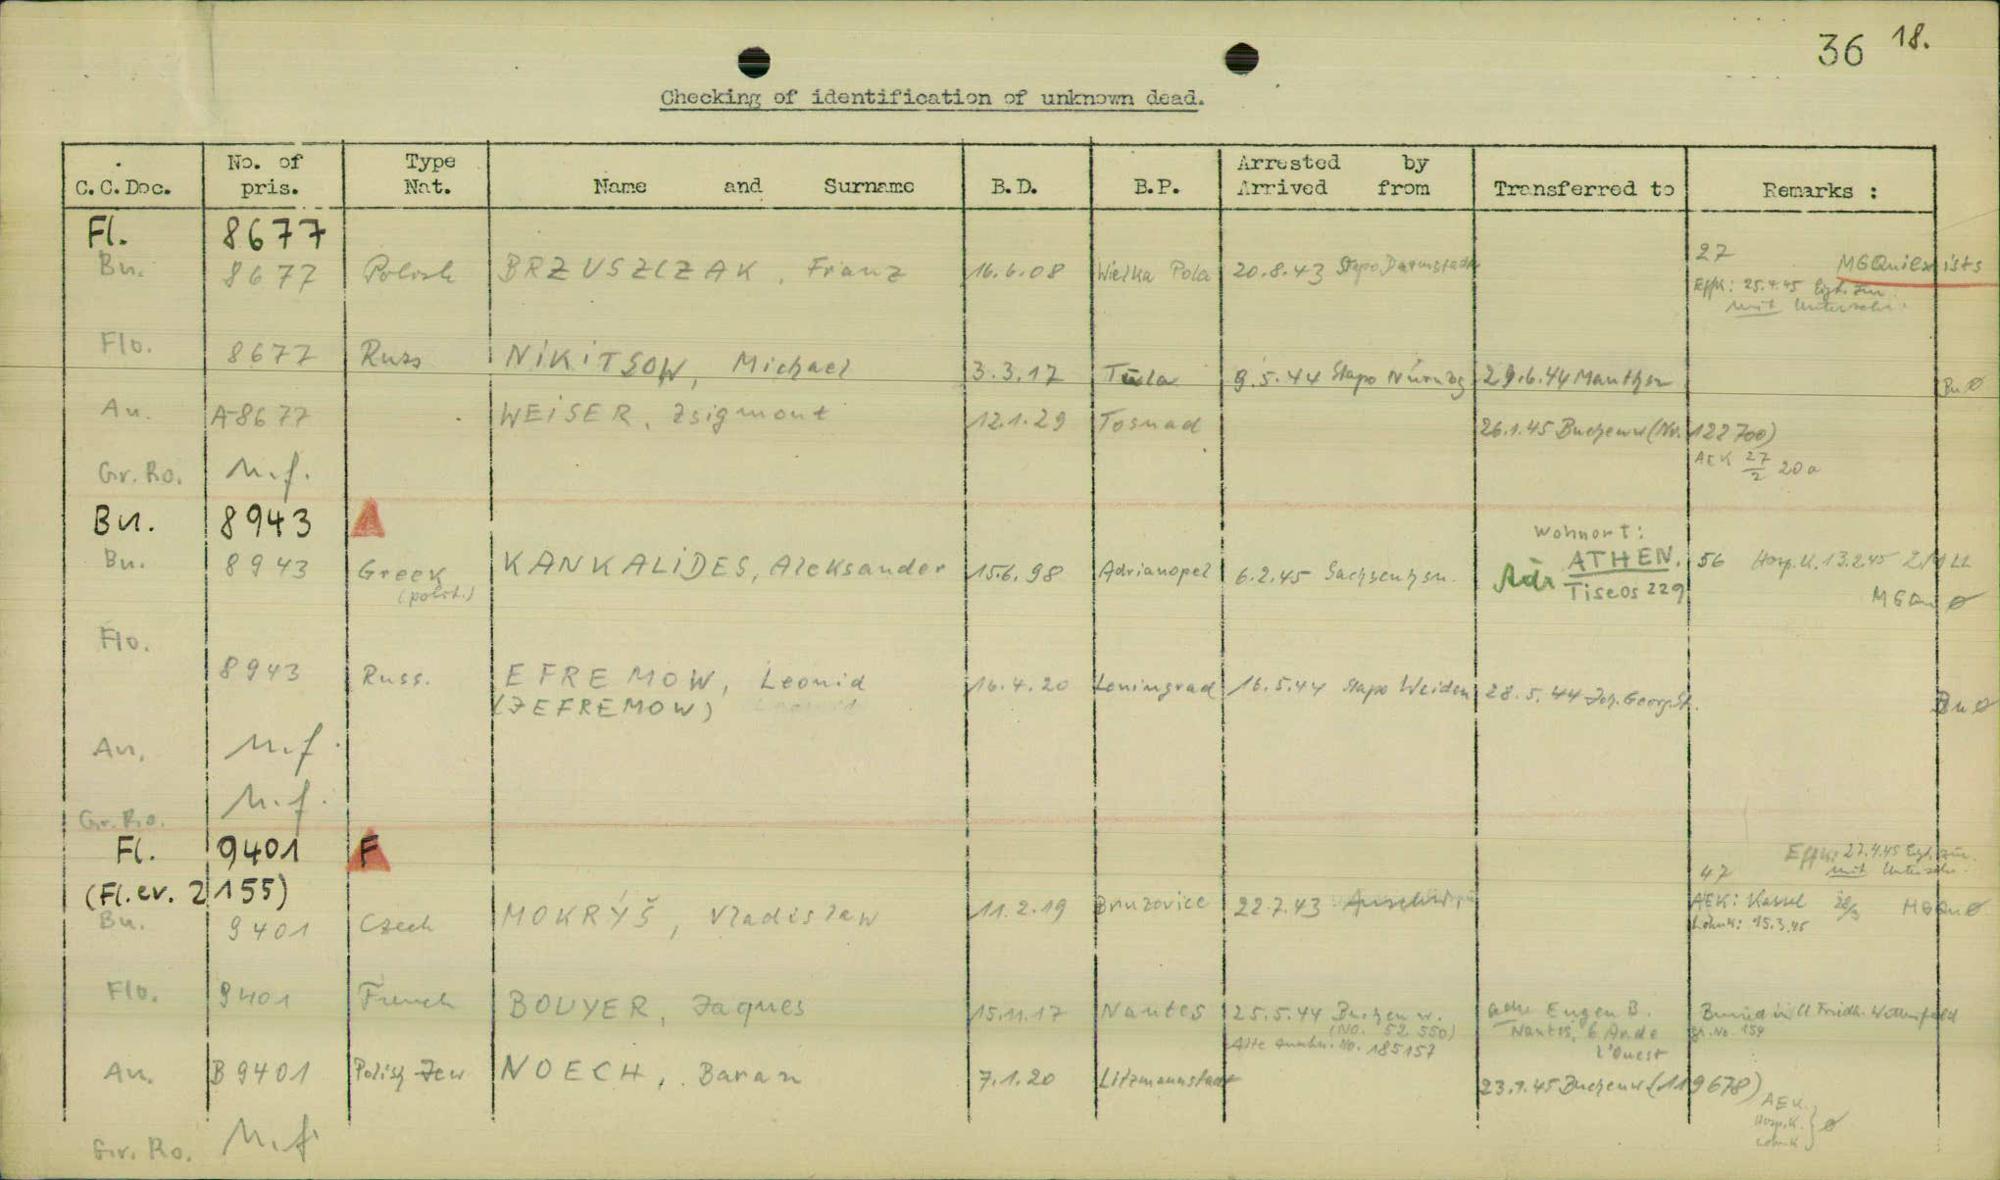 36 18.
Checking of identification of unknown dead.
C.C.Doc. No. of pris. Type Nat. Name and Surname B.D. B.P. Arrested by Arrived from Transferred to Remarks :
Fl. 8677
Bu. 8677 Polish BRZUSZCZAK, Franz 16.6.08 Wielka Pola 20.8.43 Stapo Darmstadt 27 MGQu
Effk: 25.4.45
mit
Flo. 8677 Russ NiKiTSOW, Michael 3.3.17 Tula 9.5.44 Stapo Nürnbg 29.6.44 Mauthsn Bu Ø
Au. A-8677 WEiSER, Zsigmont 12.1.29 Tosnad 26.1.45 Buchenw (Nr. 122700)
AEK 27/2 20a
Gr. Ro. n.f.
Bu. 8943
Bu. 8943 Greek (polit.) KANKALiDES, Aleksander 15.6.98 Adrianopel 6.2.45 Sachsenhsn. Wohnort: ATHEN. Tiseos 229 56 Hosp.K. 13.2.45
Adr
MGQu Ø
Flo.
8943 Russ. EFREMOW, Leonid 16.4.20 Leningrad 16.5.44 Stapo Weiden 28.5.44 Joh. Georg.St. Bu Ø
(JEFREMOW)
Au. n.f.
Gr. Ro. n.f.
Fl. 9401 F
(Fl. ev. 2155)
Effk: 27.4.45
mit
47
Bu. 9401 Czech MOKRÝŠ, Vladislaw 11.2.19 Bruzovice 22.7.43 Auschwitz AEK: Kassel MGQu Ø
Lohnk: 15.3.45
Flo. 9401 French BOUYER, Jaques 15.11.17 Nantes 25.5.44 Buchenw. Eugen B. Buried in
(No. 52 550) Nantes, 6 Gr. No. 159
Alte No. 185157 l'Ouest
Au. B 9401 Polish Jew NOECH, Baran 7.1.20 Litzmannstadt 23.1.45 Buchenw (119678)
AEK
Hosp.K.
Lohnk. } Ø
Gr. Ro. n.f.